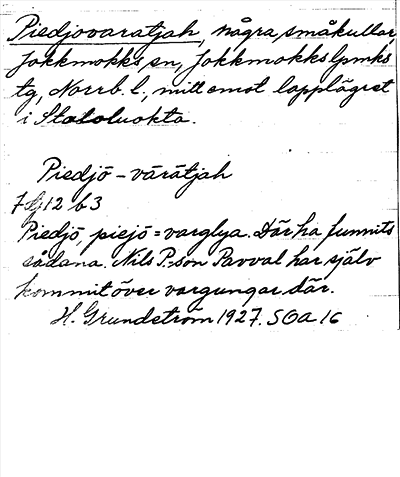 Piedjovaratjah, några småkullar,
Jokkmokks sn, Jokkmokks lpmks
tg, Norrb. l., mitt emot lapplägret
i Staloluokta.
Piedjō - vārātjah
7 G 12 b 3
Piedjō, piejō = varglya. Där ha funnits
sådana. Nils P:son Parval har själv
kommit över vargungar där.
H. Grundström 1927. SOA 16